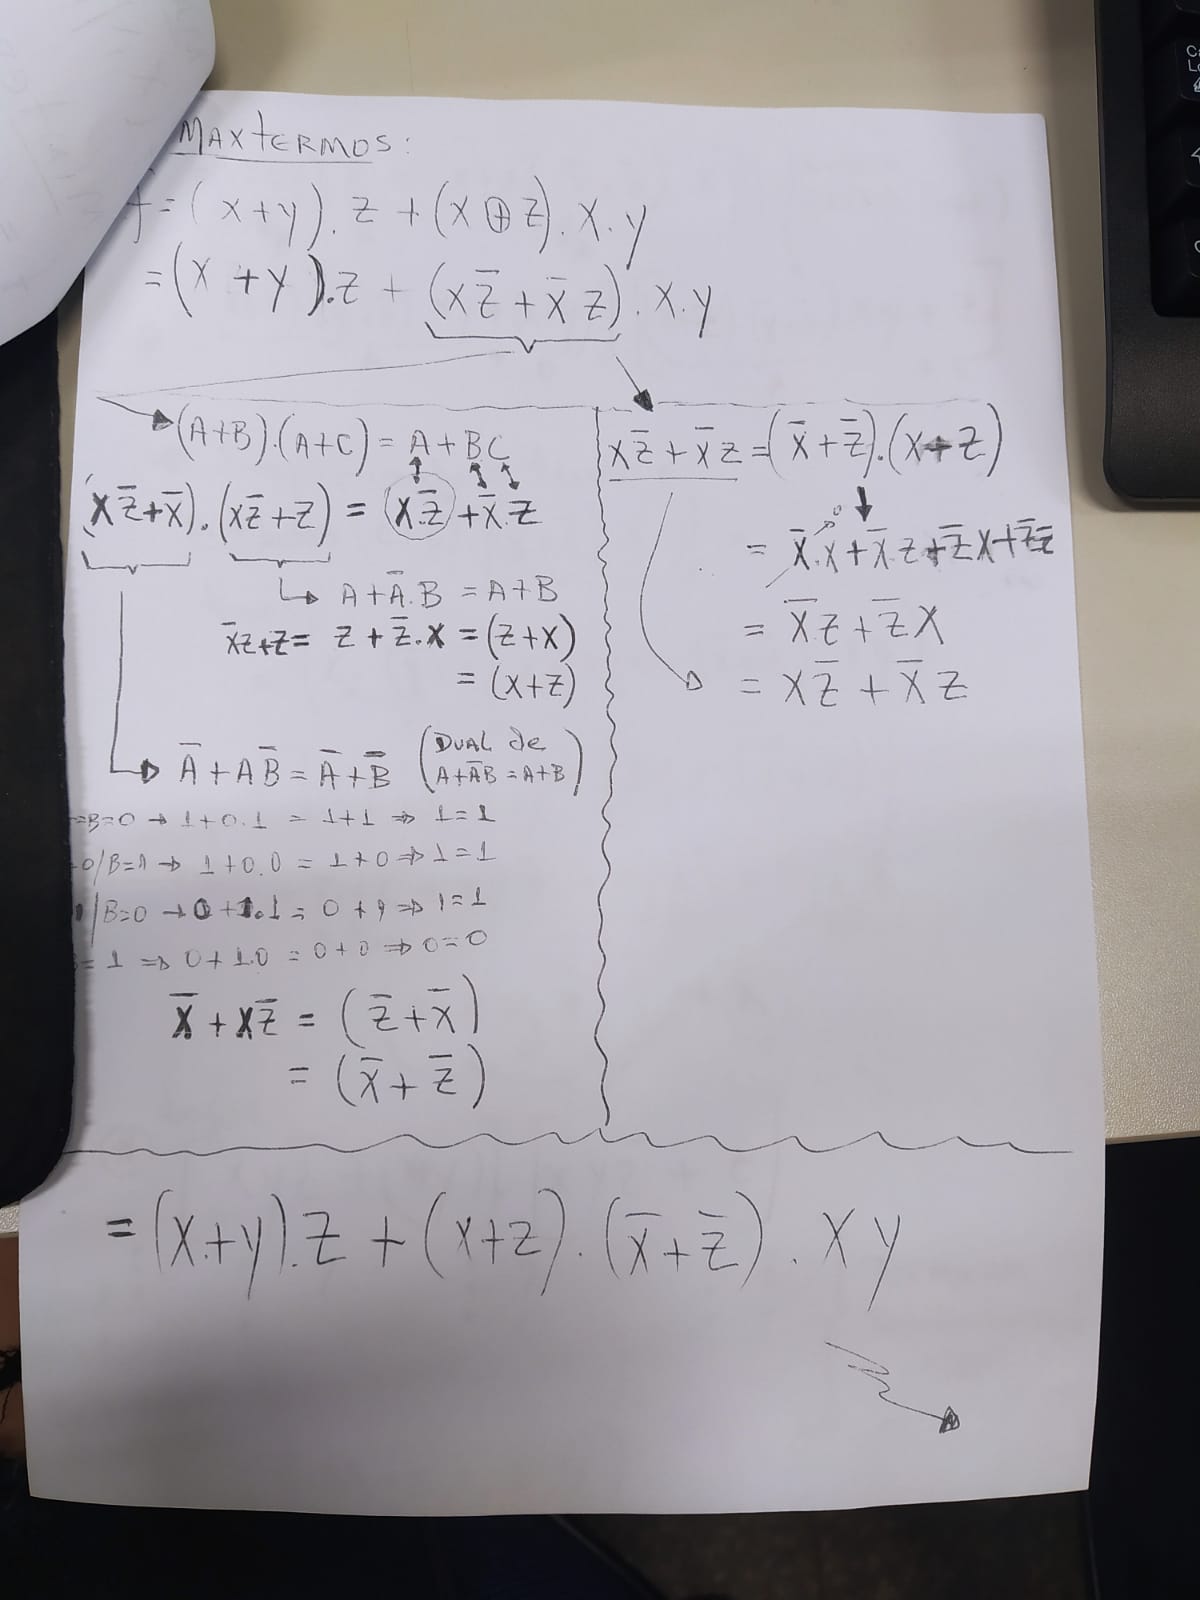 MAXTERMOS:
f = (x+y).z + (x⊕z).x.y
= (x+y).z + (xz̅ + x̅z).x.y
(A+B).(A+C) = A+BC
(xz̅+x̅).(xz̅+z) = x.z̅ + x̅.z
A+A̅.B = A+B
x̅z+z = z + z̅.x = (z+x)
= (x+z)
A̅ + AB̅ = A̅+B̅ (DUAL de A+A̅B = A+B)
=B=0 → 1+0.1 = 1+1 ⇒ 1=1
0/B=1 → 1+0.0 = 1+0 ⇒ 1=1
/B=0 → 0+1.1 = 0+1 ⇒ 1=1
= 1 ⇒ 0+1.0 = 0+0 ⇒ 0=0
x̅ + xz̅ = (z̅+x̅)
= (x̅+z̅)
xz̅ + x̅z = (x̅+z̅).(x+z)
0
= x̅.x + x̅.z + z̅x + z̅z
= x̅z + z̅x
= xz̅ + x̅z
= (x+y).z + (x+z).(x̅+z̅).xy